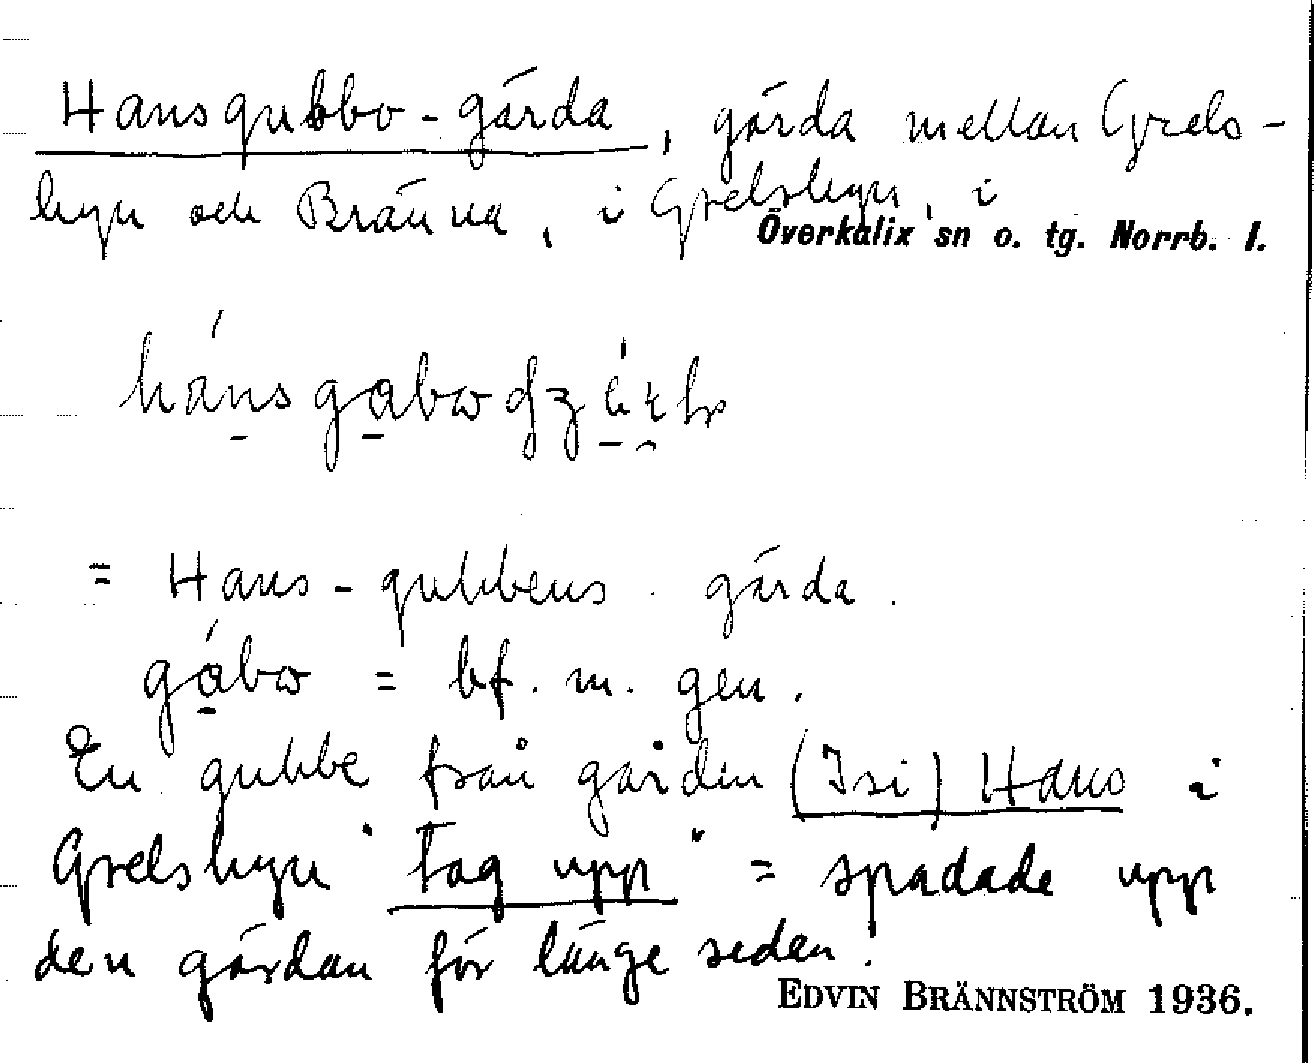 Hansgubbo-gärda, gärda mellan Grels-
byn och Bränna, i Grelsbyn, i
Överkalix sn o. tg. Norrb. l.
= Hans-gubbens gärda.
= bf. m. gen.
En gubbe från gården (Isi) Hans i
Grelsbyn "tog upp" = spadade upp
den gärdan för länge seden.
EDVIN BRÄNNSTRÖM 1936.